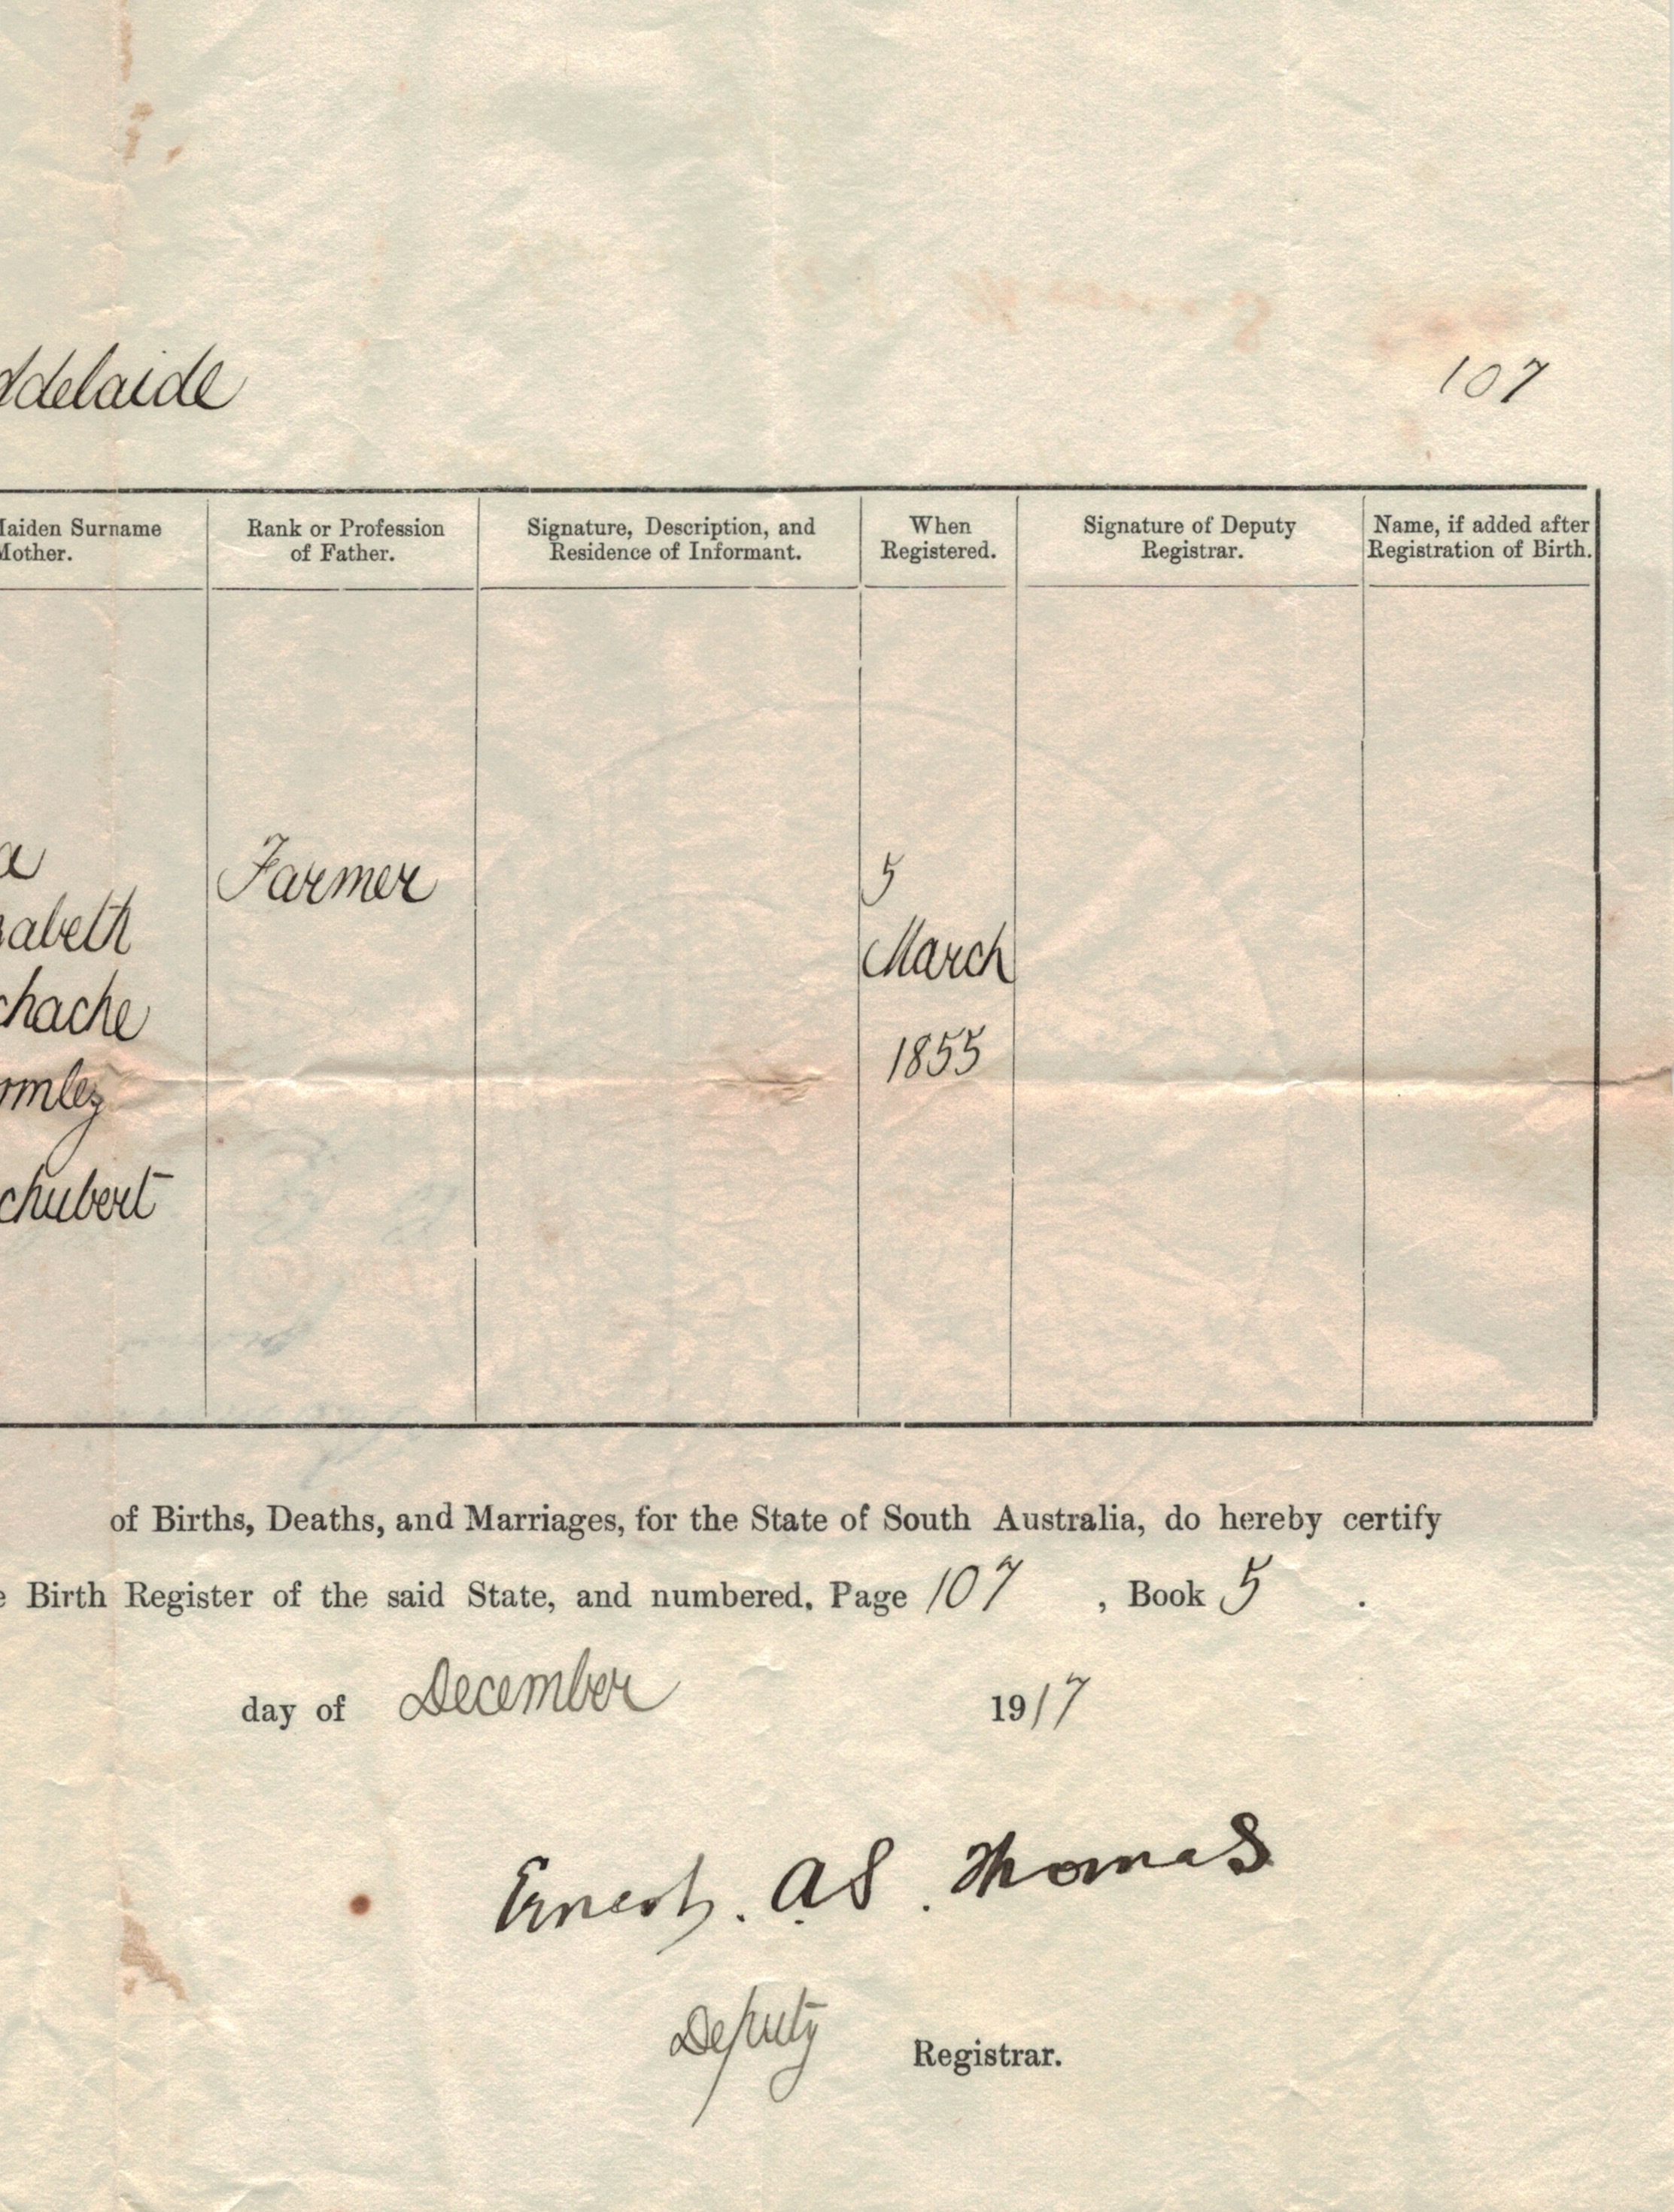 Adelaide
107
Maiden Surname
Mother.
Rank or Profession
of Father.
Signature, Description, and
Residence of Informant.
When
Registered.
Signature of Deputy
Registrar.
Name, if added after
Registration of Birth.
a
zabeth
chache
rmley
chubert
Farmer
5
March
1855
of Births, Deaths, and Marriages, for the State of South Australia, do hereby certify
e Birth Register of the said State, and numbered, Page 107 , Book 5 .
day of December 1917
Ernest. A.S. Thomas
Deputy Registrar.